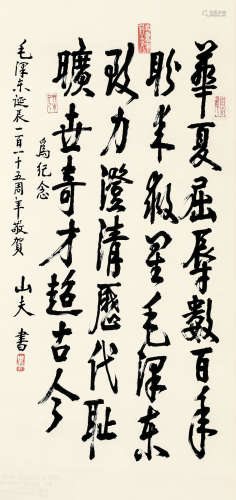 華夏屈辱數百年
盼来救星毛澤東
致力澄清歷代耻
曠世奇才超古今
為紀念
毛澤东诞辰一百一十五周年敬賀
山夫書